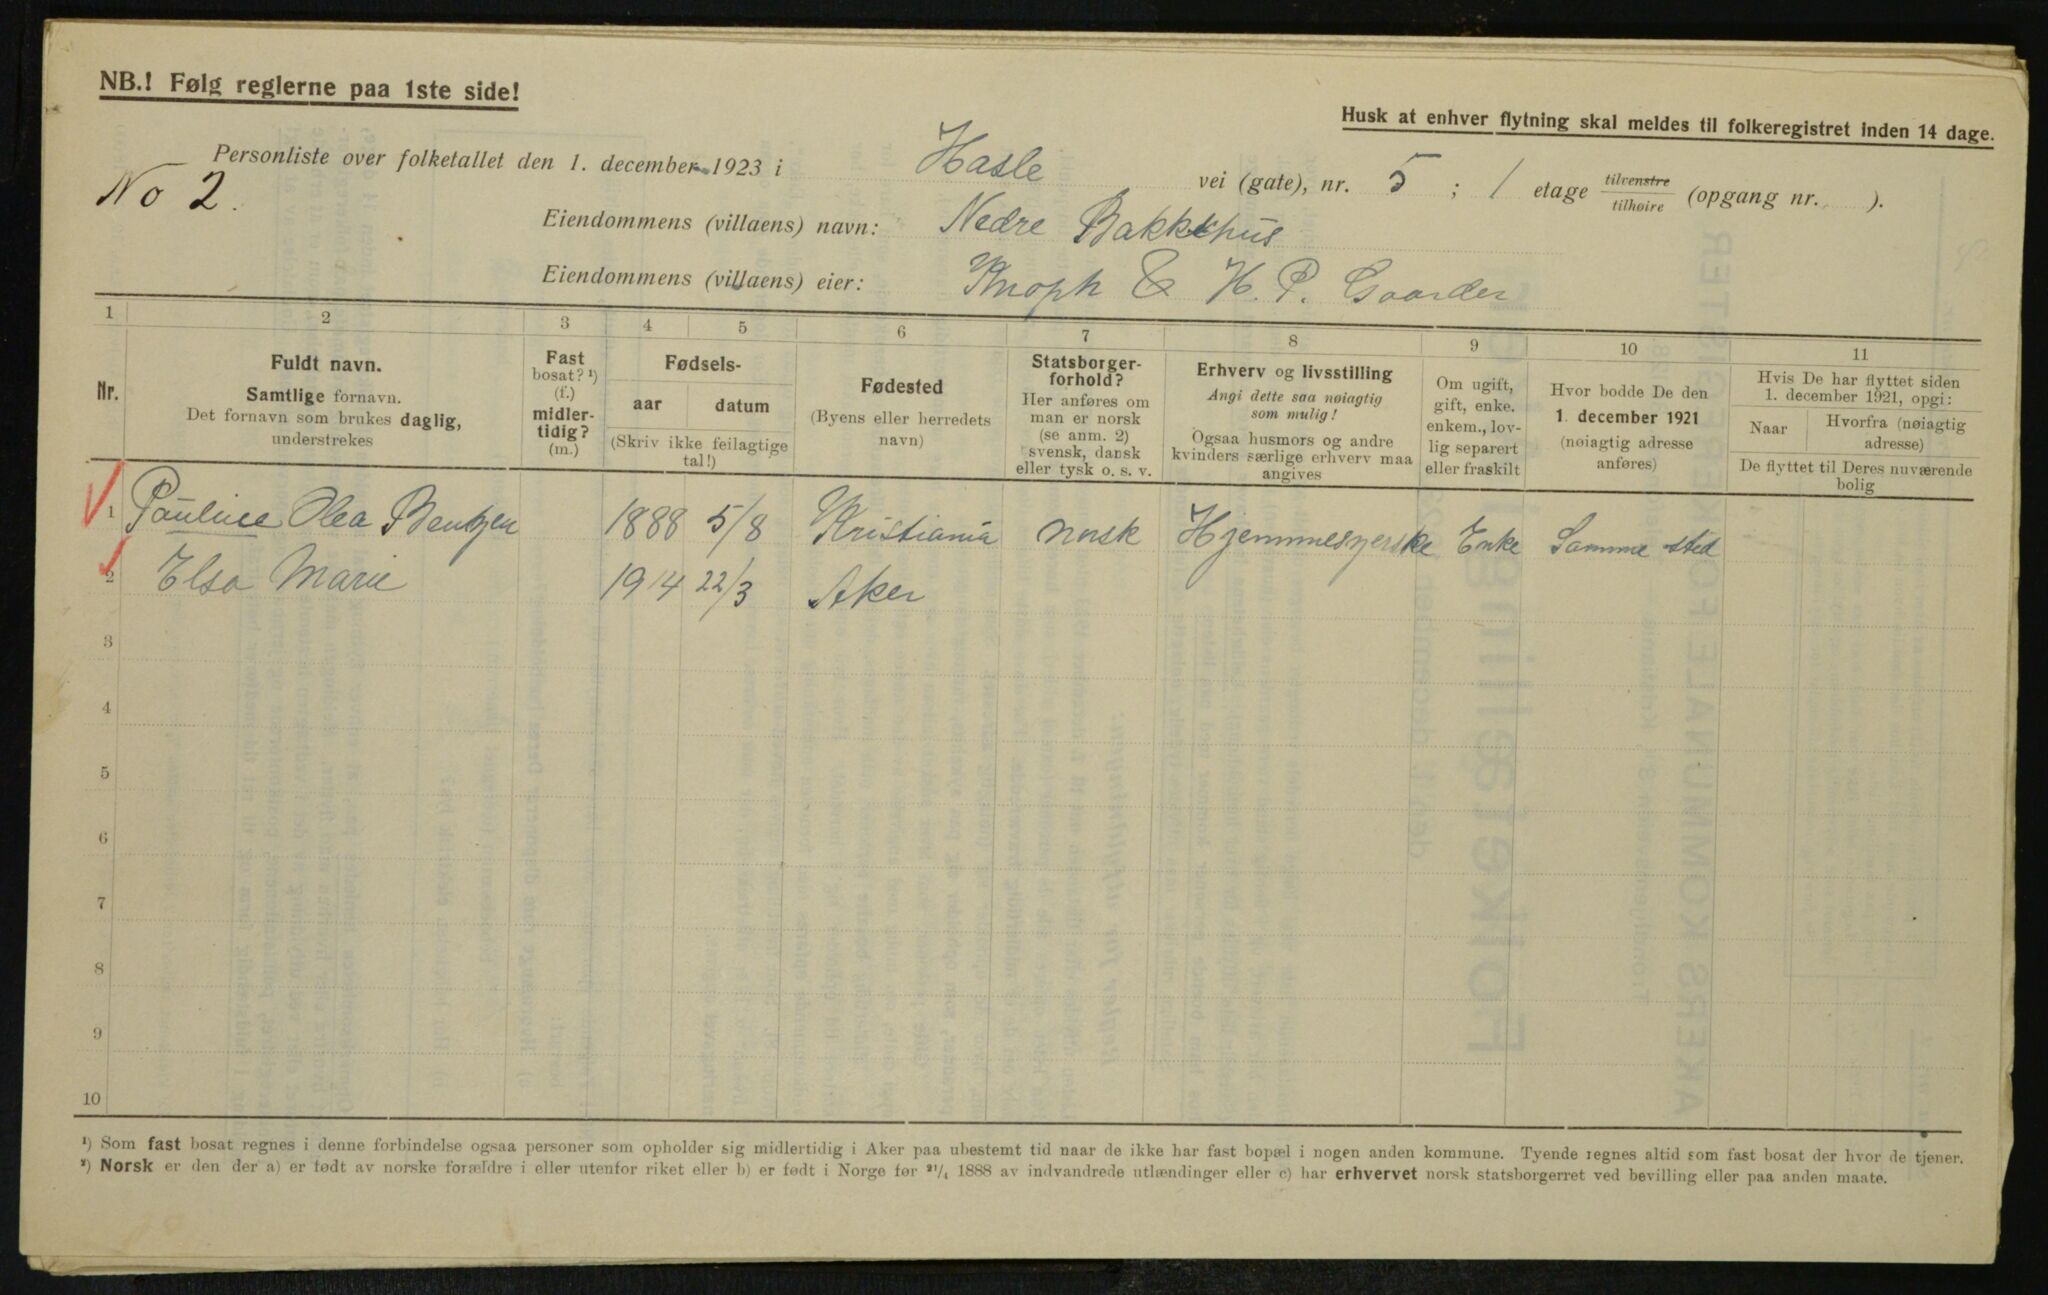 NB.! Følg reglerne paa 1ste side!
Husk at enhver flytning skal meldes til folkeregistret inden 14 dage.
Personliste over folketallet den 1. december 1923 i Hasle vei (gate), nr. 5 ; 1 etage tilvenstre / tilhøire (opgang nr. ).
No 2.
Eiendommens (villaens) navn: Nedre Bakkehus
Eiendommens (villaens) eier: Knoph & H. P. Gaarder
1 2 3 4 5 6 7 8 9 10 11
Nr.
Fuldt navn.
Samtlige fornavn.
Det fornavn som brukes daglig,
understrekes
Fast
bosat? ¹)
(f.)
midler-
tidig?
(m.)
Fødsels-
aar datum
(Skriv ikke feilagtige
tal!)
Fødested
(Byens eller herredets
navn)
Statsborger-
forhold?
Her anføres om
man er norsk
(se anm. 2)
svensk, dansk
eller tysk o. s. v.
Erhverv og livsstilling
Angi dette saa nøiagtig
som mulig!
Ogsaa husmors og andre
kvinders særlige erhverv maa
angives
Om ugift,
gift, enke.
enkem., lov-
lig separert
eller fraskilt
Hvor bodde De den
1. december 1921
(nøiagtig adresse
anføres)
Hvis De har flyttet siden
1. december 1921, opgi:
Naar
Hvorfra (nøiagtig
adresse)
De flyttet til Deres nuværende
bolig
1 Pauline Olea Bentzen 1888 5/8 Kristiania norsk Hjemmesyerske Enke Samme sted
2 Elsa Marie 1914 22/3 Aker
3
4
5
6
7
8
9
10
¹) Som fast bosat regnes i denne forbindelse ogsaa personer som opholder sig midlertidig i Aker paa ubestemt tid naar de ikke har fast bopæl i nogen anden kommune. Tyende regnes altid som fast bosat der hvor de tjener.
²) Norsk er den der a) er født av norske forældre i eller utenfor riket eller b) er født i Norge før ²¹/₄ 1888 av indvandrede utlændinger eller c) har erhvervet norsk statsborgerret ved bevilling eller paa anden maate.